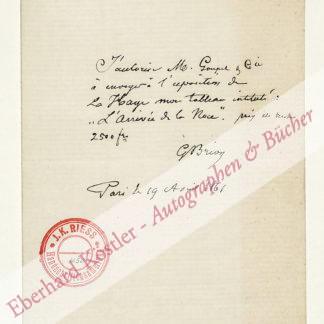 J'autorise M. Goupil & Cie
à envoyer à l'exposition de
La Haye mon tableau intitulé:
„L'Arrivée de la Noce". prix de
2500 fr
G Brion
Paris le 19 Août 1861
J.K. RIESS
Eberhard Köstler - Autographen & Bücher